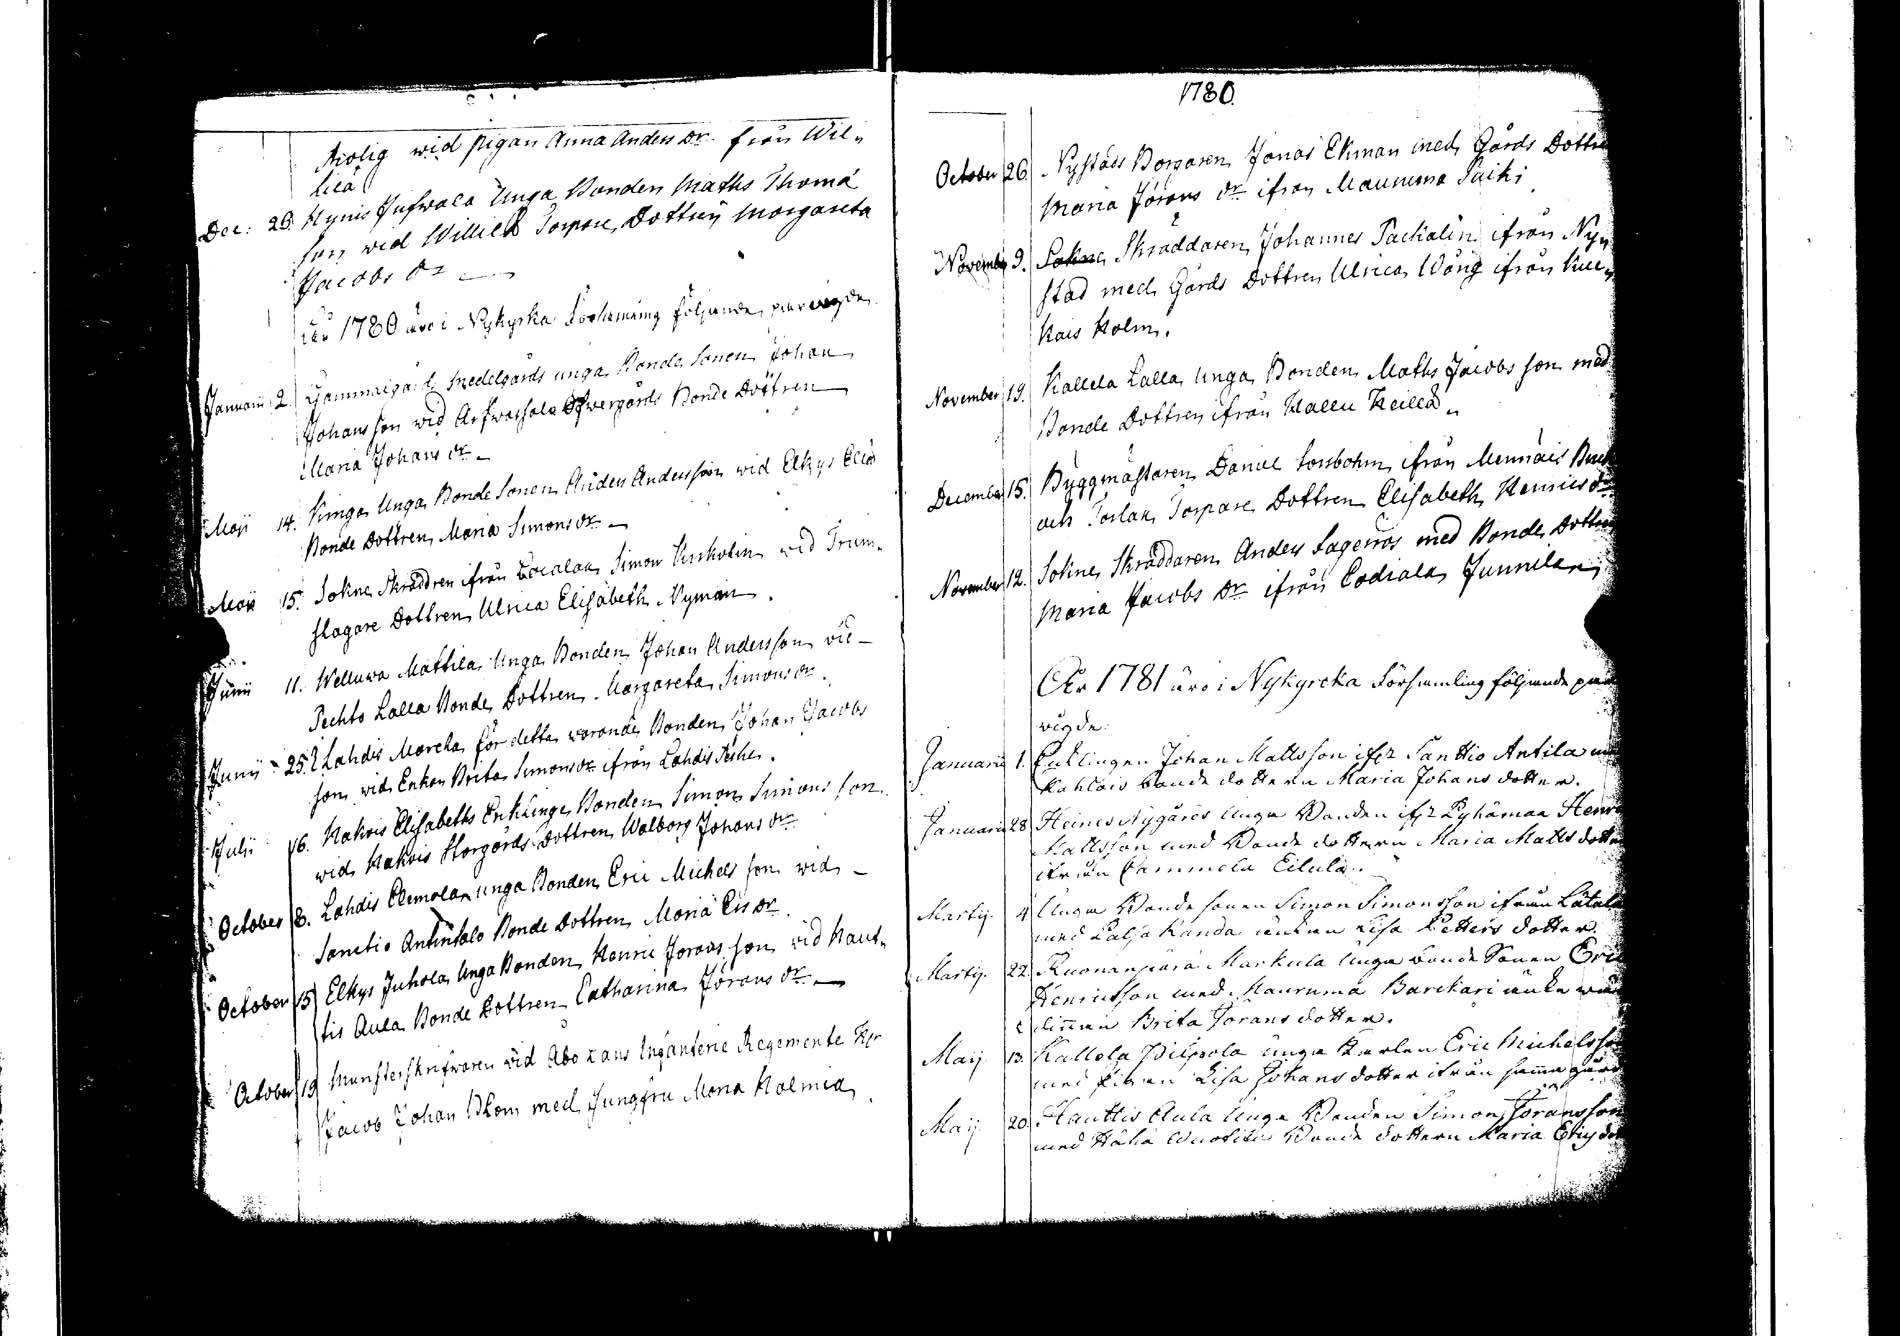 wid pigan Anna Anders Dr från Wil-
Dec: 26. Hynis Jufwala Unga Bonden Maths Thomæ
son wid Torpare Dottren Margareta
Jacobs Dr
År 1780 äro i Nykyrka Församling följande par wigde
Januarii 2. Gammelgård Medelgårds unga Bonde Sonen Johan
Johans son wid Arfwassalo Öfwergårds Bonde Dottren
Maria Johans Dr
Maji 14. Unga Bonde Sonen Anders Andersson wid Elkys
Bonde Dottren Maria Simons Dr
Maji 15. Sokne Skräddren ifrån Localax Simon wid Trum-
slagare Dottren Ulrica Elisabeth Nyman.
Junii 11. Welluwa Mattila Unga Bonden Johan Andersson wid
Lalla Bonde Dottren Margareta Simons Dr.
Junii 25. Lahdis Marcka för detta warande Bonden Johan Jacobs
son wid Enkan Brita Simons Dr ifrån Lahdis
Julii 16. Kakois Elisabeths Enklinge Bonden Simon Simons son
wid Kakois Storgårds Dottren Walborg Johans Dr
October 8. Lahdis Clemola unga Bonden Eric Michels son wid
Santtio Bonde Dottren Maria Ers Dr.
October 15 Elkys Juhola Unga Bonden Henric Jörans son wid Haut-
tis Aula Bonde Dottren Catharina Jörans Dr
October 19 Munsterskrifwaren wid Åbo Läns Infanterie Regemente Hr
Jacob Johan Blom med Jungfru Maria Holmia.
1780.
October 26. Nystads Borgaren Jonas Ekman med Gårds Dottren
Maria Jörans Dr ifrån Maunuma
November 9. Sokne Skräddaren Johannes Packalin ifrån Ny-
stad med Gårds Dottren Ulrica Wång ifrån
kais holm.
November 19. Kallela Lalla Unga Bonden Maths Jacobs son med
Bonde Dottren ifrån Kallu Keillä
December 15. Byggmästaren Daniel ifrån Mennäis Bruk
och Torlax Torpare Dottren Elisabeth Henrics Dr
November 12. Sokne Skräddaren Anders Lageroos med Bonde Dottren
Maria Jacobs Dr ifrån Codiala Junnila
År 1781 äro i Nykyrcka Församling följande par
wigde
Januarii 1. Enklingen Johan Mattsson ifr Santtio Antila med
Kahlois bonde dottern Maria Johans dotter.
Januarii 28 Heines Nygårds Unga Bonden ifr Pyhämaa Henric
Mattsson med Bonde dottern Maria Matts dotter
ifrån Cammela Eilula.
Martij. 4 Unga Bonde sonen Simon Simonsson ifrån
med enkan Lisa Petters dotter.
Martij. 22. Ruonanpärä Markula Unga bonde Sonen Eric
Henricsson med Maunuma
Brita Jörans dotter.
Maij. 13. Kallela Pilpola Unga Karlen Eric Michelsson
med Pigan Lisa Johans dotter ifrån samma gård
Maij. 20. Hauttis Aula Unga Bonden Simon Jöransson
med Bonde dottern Maria Erics